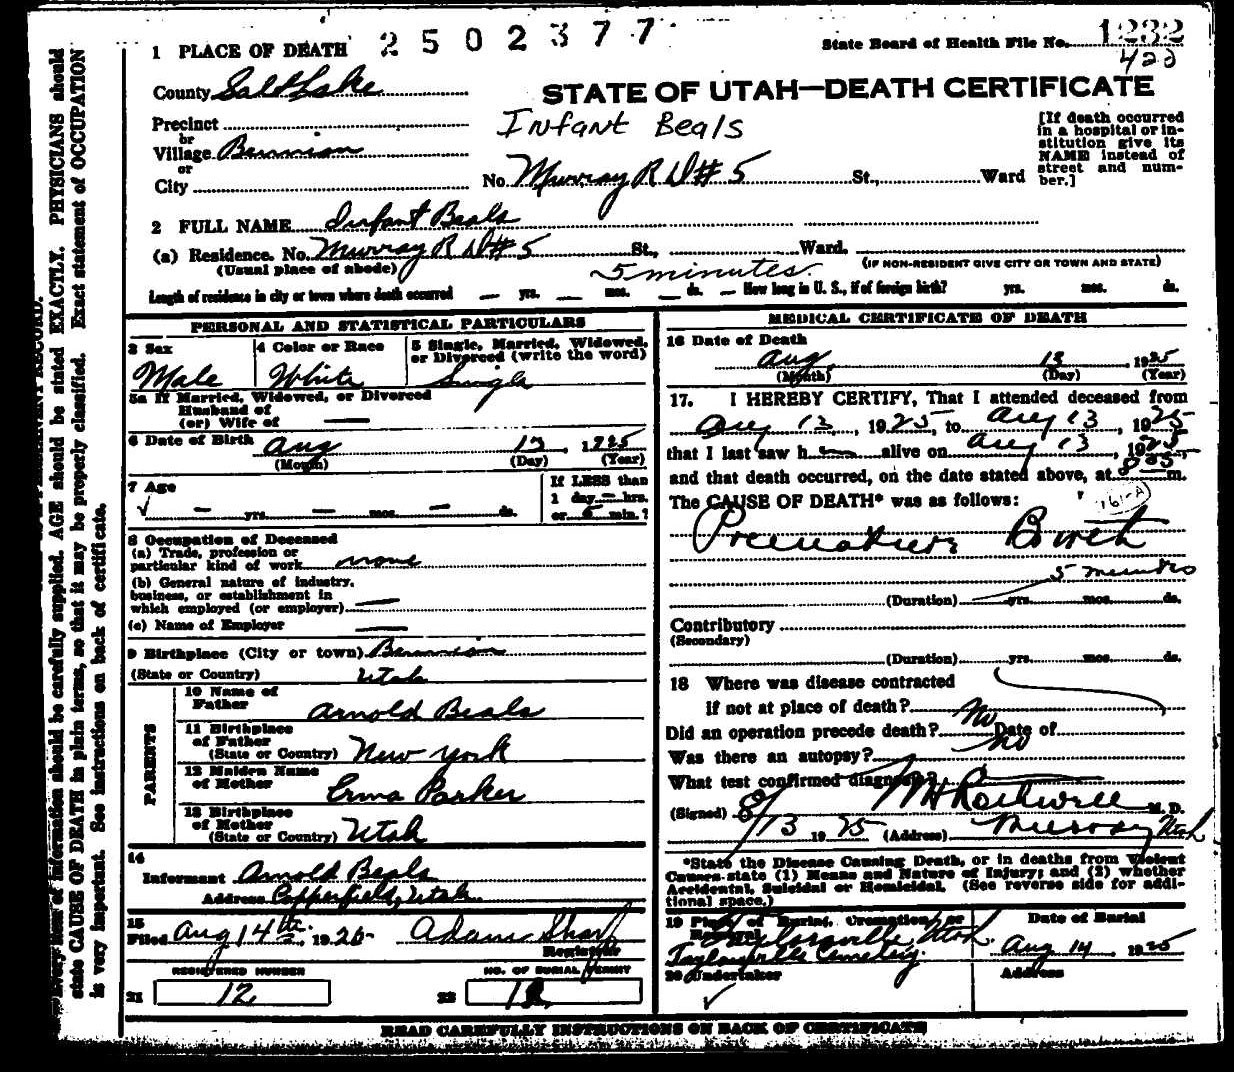 2502377
State Board of Health File No. 1232
422
1 PLACE OF DEATH
County Salt Lake
STATE OF UTAH—DEATH CERTIFICATE
Precinct
or
Village Bennion
or
City
Infant Beals
No. Murray R D # 5 St., Ward
[If death occurred
in a hospital or in-
stitution give its
NAME instead of
street and num-
ber.]
2 FULL NAME Infant Beals
(a) Residence. No. Murray R D # 5 St., Ward.
(Usual place of abode)
(IF NON-RESIDENT GIVE CITY OR TOWN AND STATE)
5 minutes.
Length of residence in city or town where death occurred — yrs. — mos. — ds. — How long in U. S., if of foreign birth? yrs. mos. ds.
PERSONAL AND STATISTICAL PARTICULARS
3 Sex
Male
4 Color or Race
White
5 Single, Married, Widowed,
or Divorced (write the word)
Single
5a If Married, Widowed, or Divorced
Husband of
(or) Wife of —
6 Date of Birth Aug 13, 1925
(Month) (Day) (Year)
7 Age
— yrs. — mos. — ds.
If LESS than
1 day — hrs.
or 5 min.?
8 Occupation of Deceased
(a) Trade, profession or
particular kind of work none
(b) General nature of industry,
business, or establishment in
which employed (or employer) —
(c) Name of Employer —
9 Birthplace (City or town) Bennion
(State or Country) Utah
PARENTS
10 Name of
Father Arnold Beals
11 Birthplace
of Father
(State or Country) New York
12 Maiden Name
of Mother Erma Parker
13 Birthplace
of Mother
(State or Country) Utah
14
Informant Arnold Beals
Address Copperfield, Utah
15
Filed Aug 14th, 1925 Adam Sharp
Registrar
REGISTERED NUMBER
21 12
NO. OF BURIAL PERMIT
22 12
MEDICAL CERTIFICATE OF DEATH
16 Date of Death
Aug 13 1925
(Month) (Day) (Year)
17. I HEREBY CERTIFY, That I attended deceased from
Aug 13, 1925, to Aug 13, 1925
that I last saw h alive on Aug 13, 1925
and that death occurred, on the date stated above, at 8 35 m.
The CAUSE OF DEATH* was as follows:
161-A
Premature Birth
5 minutes
(Duration) yrs. mos. ds.
Contributory
(Secondary)
(Duration) yrs. mos. ds.
18 Where was disease contracted
if not at place of death?
Did an operation precede death? No Date of
Was there an autopsy? No
What test confirmed diagnosis?
(Signed) M. D.
8/13 1925 (Address) Murray Utah
*State the Disease Causing Death, or in deaths from Violent
Causes state (1) Means and Nature of Injury; and (2) whether
Accidental, Suicidal or Homicidal. (See reverse side for addi-
tional space.)
19 Place of Burial, Cremation, or
Removal Taylorsville, Utah.
Taylorsville Cemetery.
Date of Burial
Aug 14, 1925
20 Undertaker
Address
READ CAREFULLY INSTRUCTIONS ON BACK OF CERTIFICATE
PERMANENT RECORD.
Every item of information should be carefully supplied. AGE should be stated EXACTLY. PHYSICIANS should
state CAUSE OF DEATH in plain terms, so that it may be properly classified. Exact statement of OCCUPATION
is very important. See instructions on back of certificate.